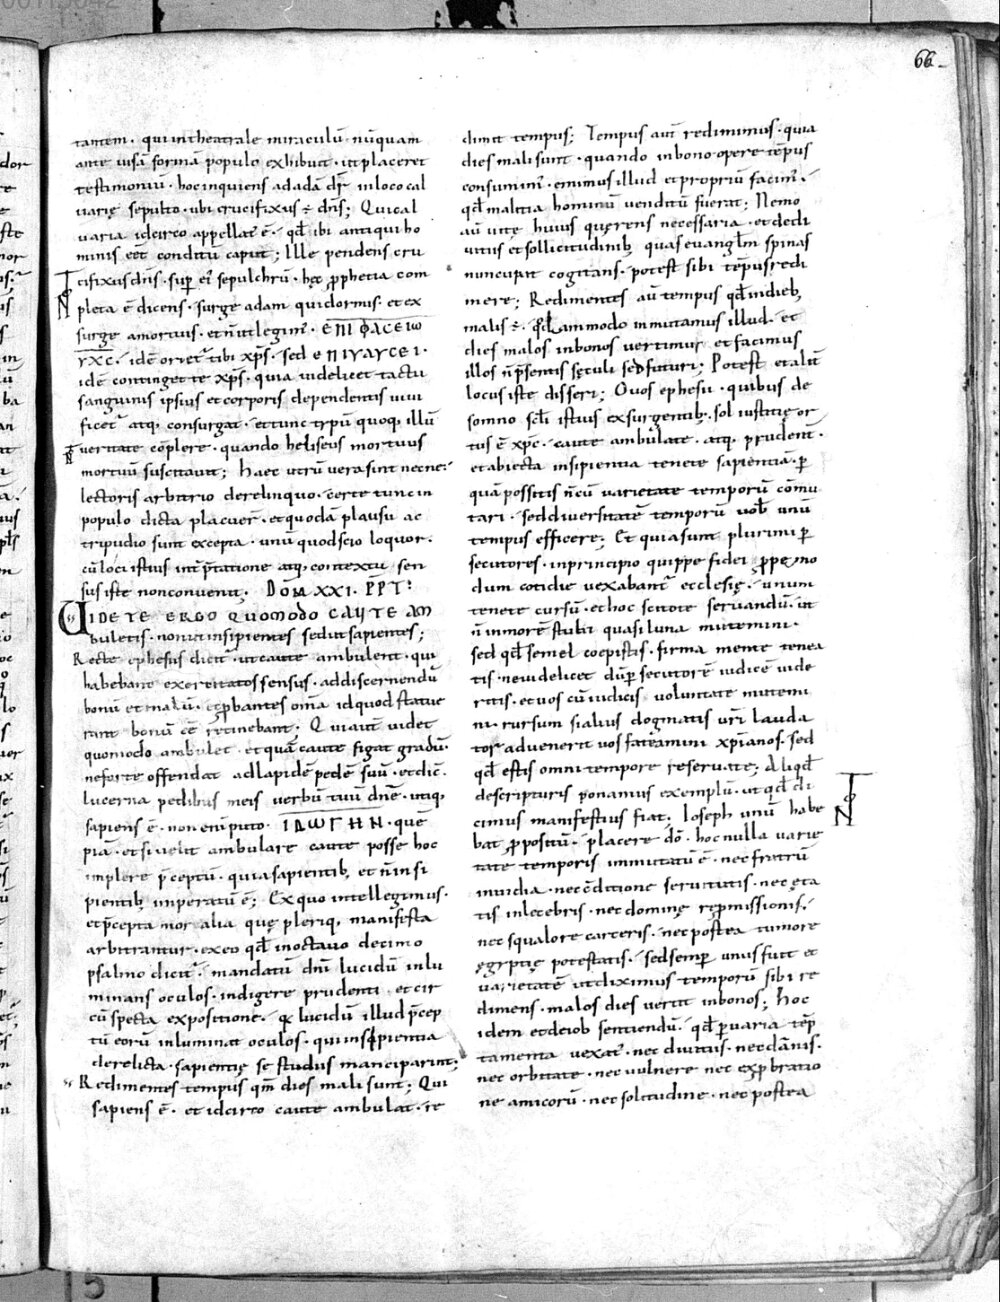 66
tantem · qui in theatrale miraculū · nūquam
ante uisā formā populo exhibuit · ut placeret
testimoniū · hoc inquiens ad adā dr̄ · in loco cal
uarię sepulto · ubi crucifixus ē dn̄s; Qui cal
uaria idcirco appellat̄ ē · qđ ibi antiqui ho
minis eēt conditū caput; Ille pendens cru
cifixus dn̄s · sup ei sepulchrū · hęc p̱phetia com
pleta ē dicens · surge adam qui dormis · et ex
surge a mortuis · et n̄ ut legim̄ · ΕΠΙ ΦΑCΕΙω
ΥΧC · idē orietˀ tibi xp̄s · sed ΕΠΙΥΑΥCΕΙ ·
idē continget te xp̄s · quia uidelicet tactu
sanguinis ipsius et corporis dependentis uiui
ficetˀ atq; consurgat · et tunc trpū quoq; illū
ueritate cōplere · quando heliseus mortuus
mortuū suscitauit; Haec utrū uera sint necne ·
lectoris arbitrio derelinquo · certe tunc in
populo dicta placuer̄ · et quodā plausu ac
tripudio sunt excepta · unū quod scio loquor ·
cū loci istius int̄p̄tatione atq; contextu sen
sus iste non conuenit; DOM̄ XXI · P̄PT̄ ·
UIDETE ERGO QUOMODO CAUTE AM
buletis · non ut insipientes sed ut sapientes;
Recte ephesiis dicitˀ · ut caute ambulent · qui
habebant exercitatos sensus · ad discernendū
bonū et malū · et p̱bantes om̄a id quod statue
rant bonū eē retinebant; Qui autē uidet
quomodo ambulet · et quā caute figat gradū ·
ne forte offendat ad lapidē pedē suū · et dic̄ ·
lucerna pedibus meis uerbū tuū dn̄e · utiq;
sapiens ē · non eni puto · ΙΔωΓΗΝ · que
piā · etsi uelit ambulare caute posse hoc
implere p̄ceptū · quia sapientib; et n̄ insi
pientib; imperatū ē; Ex quo intellegimus ·
et p̄cepta moralia quę pleriq; manifesta
arbitrantur · ex eo qđ in octauo decimo
psalmo dicitˀ · mandatū dn̄i lucidū inlu
minans oculos · indigere prudenti et cir
cūspecta expositione · qa lucidū illud p̄cep
tū eorū inluminat oculos · qui insipientia
derelicta · sapientię se studiis manciparint;
Redimentes tempus qm̄ dies mali sunt; Qui
sapiens ē · et idcirco caute ambulat · re
dimit tempus; Tempus aut̄ redimimus · quia
dies mali sunt · quando in bono opere tēpus
consumim̄ · emimus illud et propriū facim̄ ·
qđ malitia hominū uenditū fuerat; Nemo
aū uitę huius quęrens necessaria · et de diui
tiis et sollicitudinib; quas euangl̄m spinas
nuncupat cogitans · potest sibi tēpus redi
mere; Redimentes aū tempus qđ in dieb;
malis ē · qđammodo inmutamus illud · et
dies malos in bonos uertimus et facimus
illos n̄ p̄sentis sęculi sed futuri; Potest et alit̄
locus iste disseri; O uos ephesii · quibus de
somno scl̄i istius exsurgentib; sol iustitię or
tus ē xp̄c · caute ambulate · atq; prudent̄ ·
et abiecta insipientia tenete sapientiā · p̱
quā possitis n̄ cū uarietate temporū cōmu
tari · sed diuersitatē temporū uob̄ unū
tempus efficere; Et quia sunt plurimi p̱
secutores · in principio quippe fidei p̱pe mo
dum cotidie uexabantˀ ecclesię · unum
tenete cursū · et hoc scitote seruandū · ut
n̄ in morē stulti quasi luna mutemini ·
sed qđ semel coepistis · firma mente tenea
tis · ne uidelicet dūp̱secutorē iudicē uide
ritis · et uos cū iudicis uoluntate mutemi
ni · rursum si alius dogmatis ur̄i lauda
tor aduenerit uos fateamini xp̄ianos · sed
qđ estis omni tempore reseruate; Aliqđ
de scripturis ponamus exemplū · ut qđ di
cimus manifestius fiat · Ioseph unū habe
bat p̱positū · placere dō · hoc nulla uarie
tate temporis immutatū ē · nec fratrū
inuidia · nec c̄ditione seruitutis · nec ęta
tis inlecebris · nec dominę rep̱missionis ·
nec squalore carceris · nec postea tumore
ęgyptię potestatis · sed semp̱ unus fuit et
uarietatē ut diximus temporū sibi re
dimens · malos dies uertit in bonos; Hoc
idem et de iob sentiendū · qđ p̱ uaria tēp
tamenta uexatˀ · nec diuitiis · nec dānis ·
nec orbitate · nec uulnere nec exp̱bratio
ne amicorū · nec solitudine · nec postea